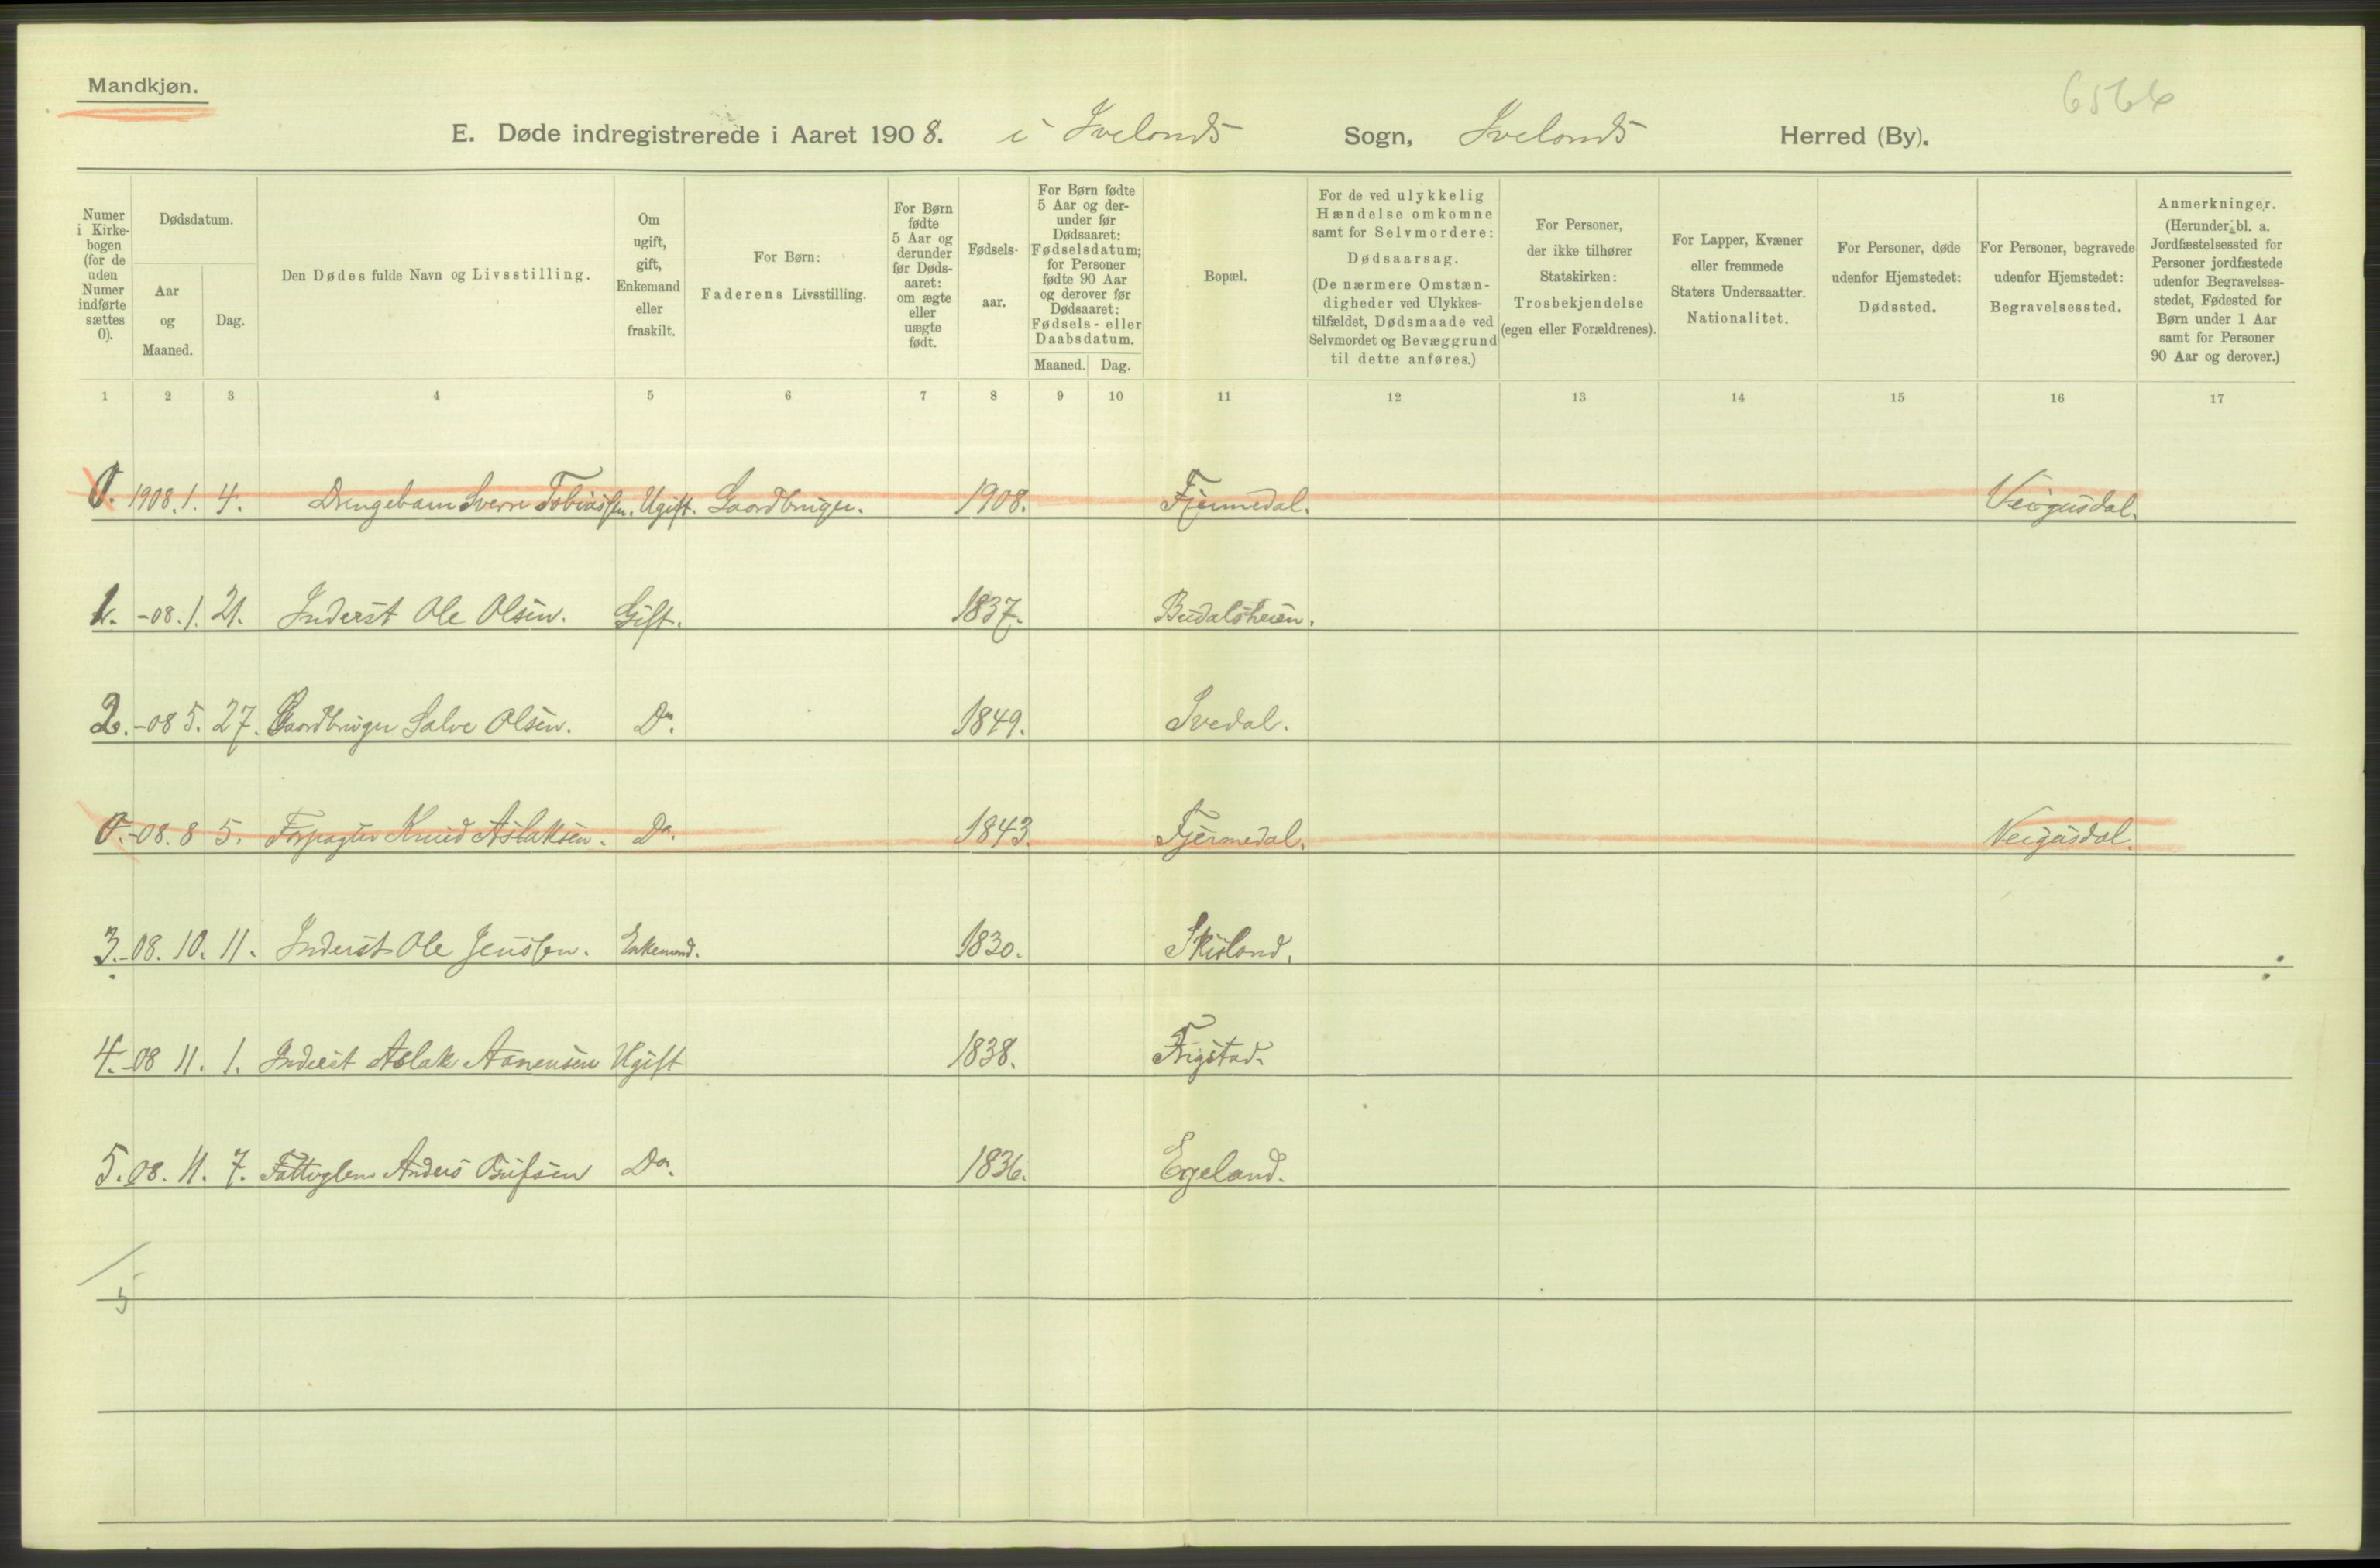 Mandkjøn.
6566
E. Døde indregistrerede i Aaret 1908. i Ivelands Sogn, Ivelands Herred (By).
Numer i Kirkebogen (for de uden Numer indførte sættes 0).
Dødsdatum.
Aar og Maaned.
Dag.
Den Dødes fulde Navn og Livsstilling.
Om ugift, gift, Enkemand eller fraskilt.
For Børn: Faderens Livsstilling.
For Børn fødte 5 Aar og derunder før Dødsaaret: om ægte eller uægte født.
Fødselsaar.
For Børn fødte 5 Aar og derunder før Dødsaaret: Fødselsdatum; for Personer fødte 90 Aar og derover før Dødsaaret: Fødsels- eller Daabsdatum.
Maaned. Dag.
Bopæl.
For de ved ulykkelig Hændelse omkomne samt for Selvmordere: Dødsaarsag. (De nærmere Omstændigheder ved Ulykkestilfældet, Dødsmaade ved Selvmordet og Bevæggrund til dette anføres.)
For Personer, der ikke tilhører Statskirken: Trosbekjendelse (egen eller Forældrenes).
For Lapper, Kvæner eller fremmede Staters Undersaatter. Nationalitet.
For Personer, døde udenfor Hjemstedet: Dødssted.
For Personer, begravede udenfor Hjemstedet: Begravelsessted.
Anmerkninger. (Herunder bl. a. Jordfæstelsessted for Personer jordfæstede udenfor Begravelsesstedet, Fødested for Børn under 1 Aar samt for Personer 90 Aar og derover.)
1 2 3 4 5 6 7 8 9 10 11 12 13 14 15 16 17
0. 1908. 1. 4. Drengebarn Sverre Tobiassen. Ugift. Gaardbruger. 1908. Fjermedal. Veigusdal.
1. -08. 1. 21. Inderst Ole Olsen. Gift. 1837. Budalsheien.
2. -08 5. 27. Gaardbruger Salve Olsen. Do. 1849. Ivedal.
0. -08. 8 5. Forpagter Knud Aslaksen. Do. 1843. Fjermedal. Veigusdal.
3. -08. 10. 11. Inderst Ole Jenssen. Enkemand. 1830. Skisland.
4. -08 11. 1. Inderst Aslak Aanensen Ugift 1838. Frigstad.
5. 08. 11. 7. Anders Do. 1836. Eygeland.
5